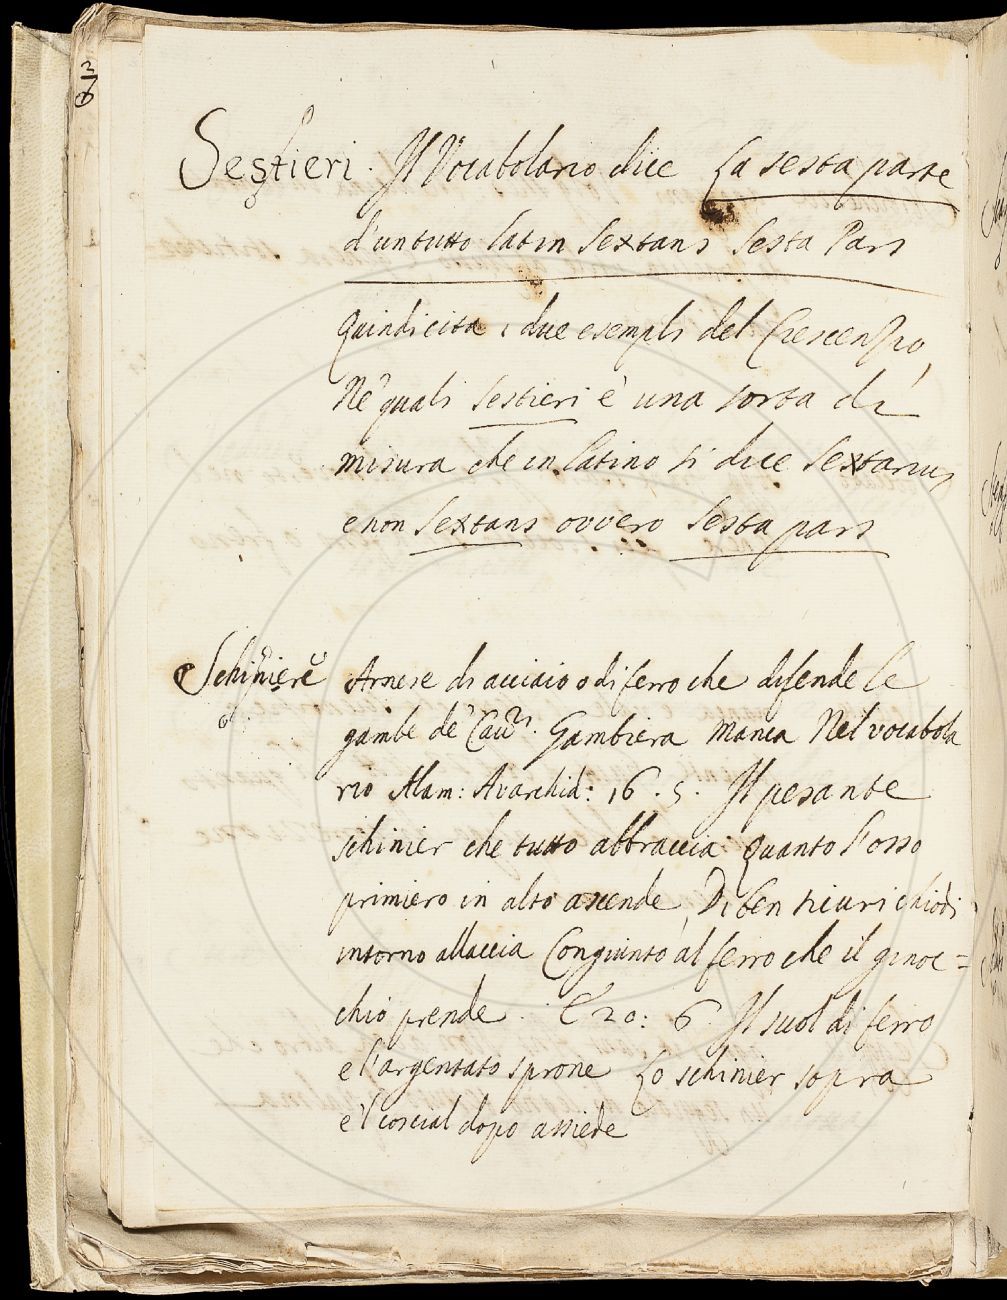 Sestieri. Il Vocabolario dice La sesta parte
d'un tutto latin Sextans Sesta Pars
Quindi cita i due esempli del Crescenzio,
Ne' quali Sestieri è una sorta di
misura che in latino si dice Sextarius
e non Sextans ovvero Sesta pars
Schiniere Arnese di acciaio o di ferro che difende le
gambe de' Cav.ri Gambiera Manca Nel vocabola
rio Alam: Avarchid: 16. 5. Il pesante
schinier che tutto abbraccia Quanto l'osso
primiero in alto ascende, Di ben sicuri chiodi
intorno allaccia Congiunto al ferro che il ginoc=
chio prende. E 20: 6. Il suol di ferro
e l'argentato sprone Lo schinier sopra
e 'l coscial dopo assiede